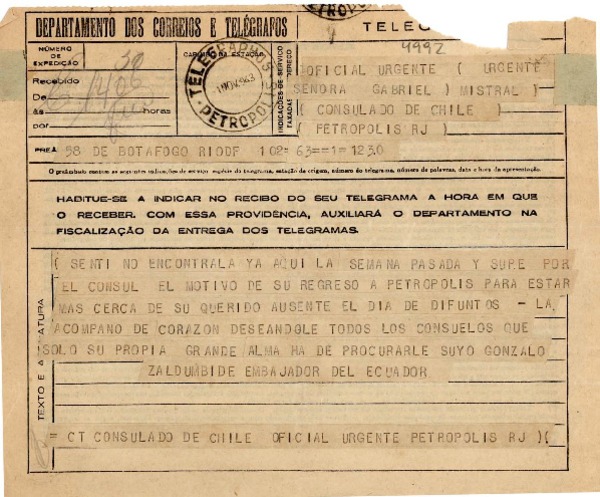 DEPARTAMENTO DOS CORREIOS E TELÉGRAFOS
TELEG
4992
NÚMERO DE EXPEDIÇÃO
38
CARIMBO DA ESTAÇÃO
TELEGRAPHOS
PETROPOLIS
PETROPOLIS
1 NOV 1943
INDICAÇÕES DE SERVIÇO TAXADAS
ENDEREÇO
Recebido
De
às horas
por
OFICIAL URGENTE ( URGENTE
SENORA GABRIEL ) MISTRAL (
( CONSULADO DE CHILE )
( PETROPOLIS RJ )
PREÂ 58 DE BOTAFOGO RIODF 102= 63==1= 1230
O preâmbulo contém as seguintes indicações de serviço: espécie do telegrama, estação de origem, número do telegrama, número de palavras, data e hora da apresentação.
HABITUE-SE A INDICAR NO RECIBO DO SEU TELEGRAMA A HORA EM QUE
O RECEBER. COM ESSA PROVIDÊNCIA, AUXILIARÁ O DEPARTAMENTO NA
FISCALIZAÇÃO DA ENTREGA DOS TELEGRAMAS.
TEXTO E ASSINATURA
( SENTI NO ENCONTRALA YA AQUI LA SEMANA PASADA Y SUPE POR
EL CONSUL EL MOTIVO DE SU REGRESO A PETROPOLIS PARA ESTAR
MAS CERCA DE SU QUERIDO AUSENTE EL DIA DE DIFUNTOS - LA
ACOMPANO DE CORAZON DESEANDOLE TODOS LOS CONSUELOS QUE
SOLO SU PROPIA GRANDE ALMA HA DE PROCURARLE SUYO GONZALO
ZALDUMBIDE EMBAJADOR DEL ECUADOR
= CT CONSULADO DE CHILE OFICIAL URGENTE PETROPOLIS RJ )(